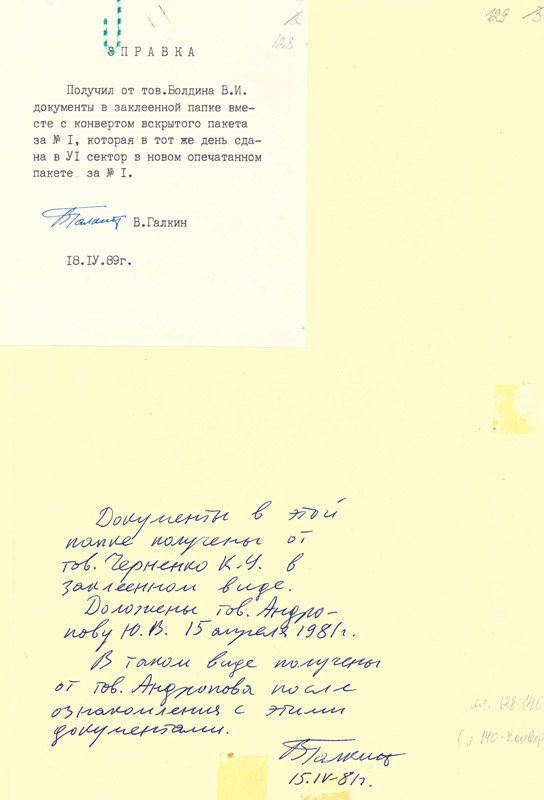 2
128
129 3
СПРАВКА
Получил от тов.Болдина В.И.
документы в заклеенной папке вме-
сте с конвертом вскрытого пакета
за № I, которая в тот же день сда-
на в УI сектор в новом опечатанном
пакете за № I.
Галкин В.Галкин
I8.IУ.89г.
Документы в этой
папке получены от
тов. Черненко К.У. в
заклеенном виде.
Доложены тов. Андро-
пову Ю.В. 15 апреля 1981г.
В таком виде получены
от тов. Андропова после
ознакомления с этими
документами.
ВГалкин
15.IV-81г.
лл. 128-140
(л 140-конверт